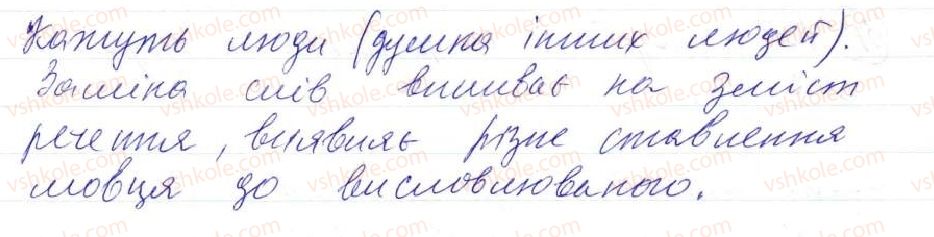 Кажуть люди (думка інших людей).
Заміна слів впливає на зміст
речення, виявляє різне ставлення
мовця до висловлюваного.